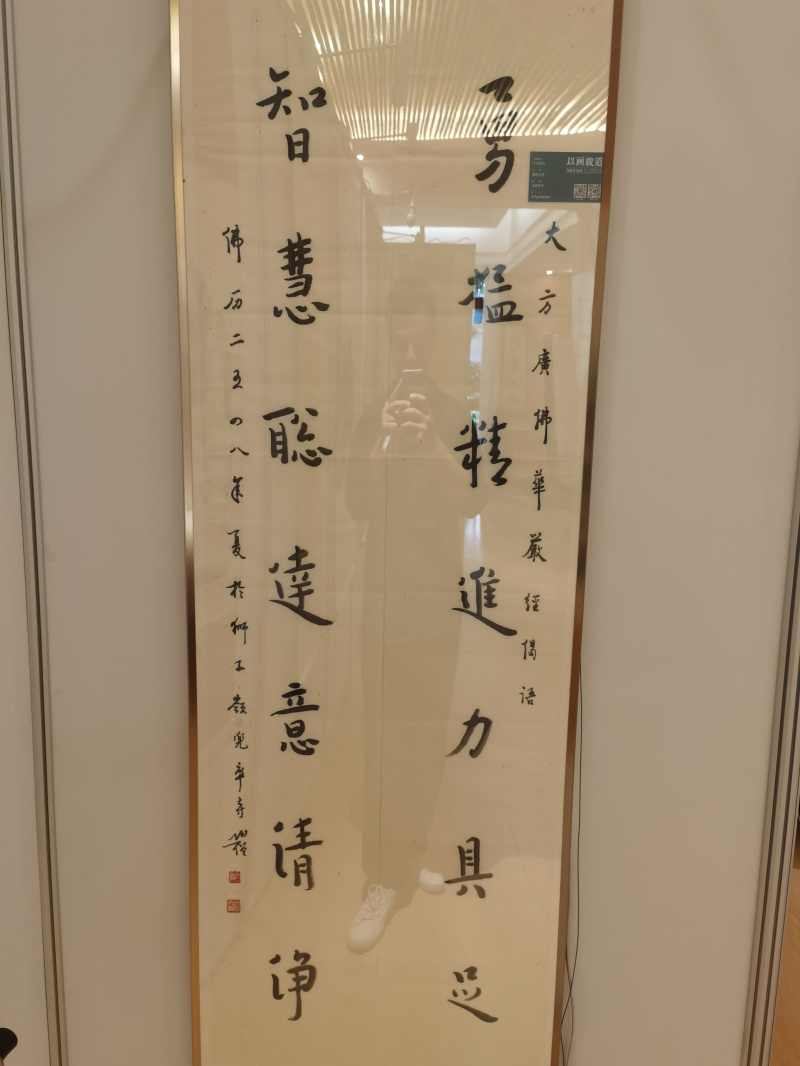 大方廣佛華嚴經偈語
勇猛精進力具足
智慧聡達意清净
佛历二五四八年夏於獅子嶺兜率寺
以画载道